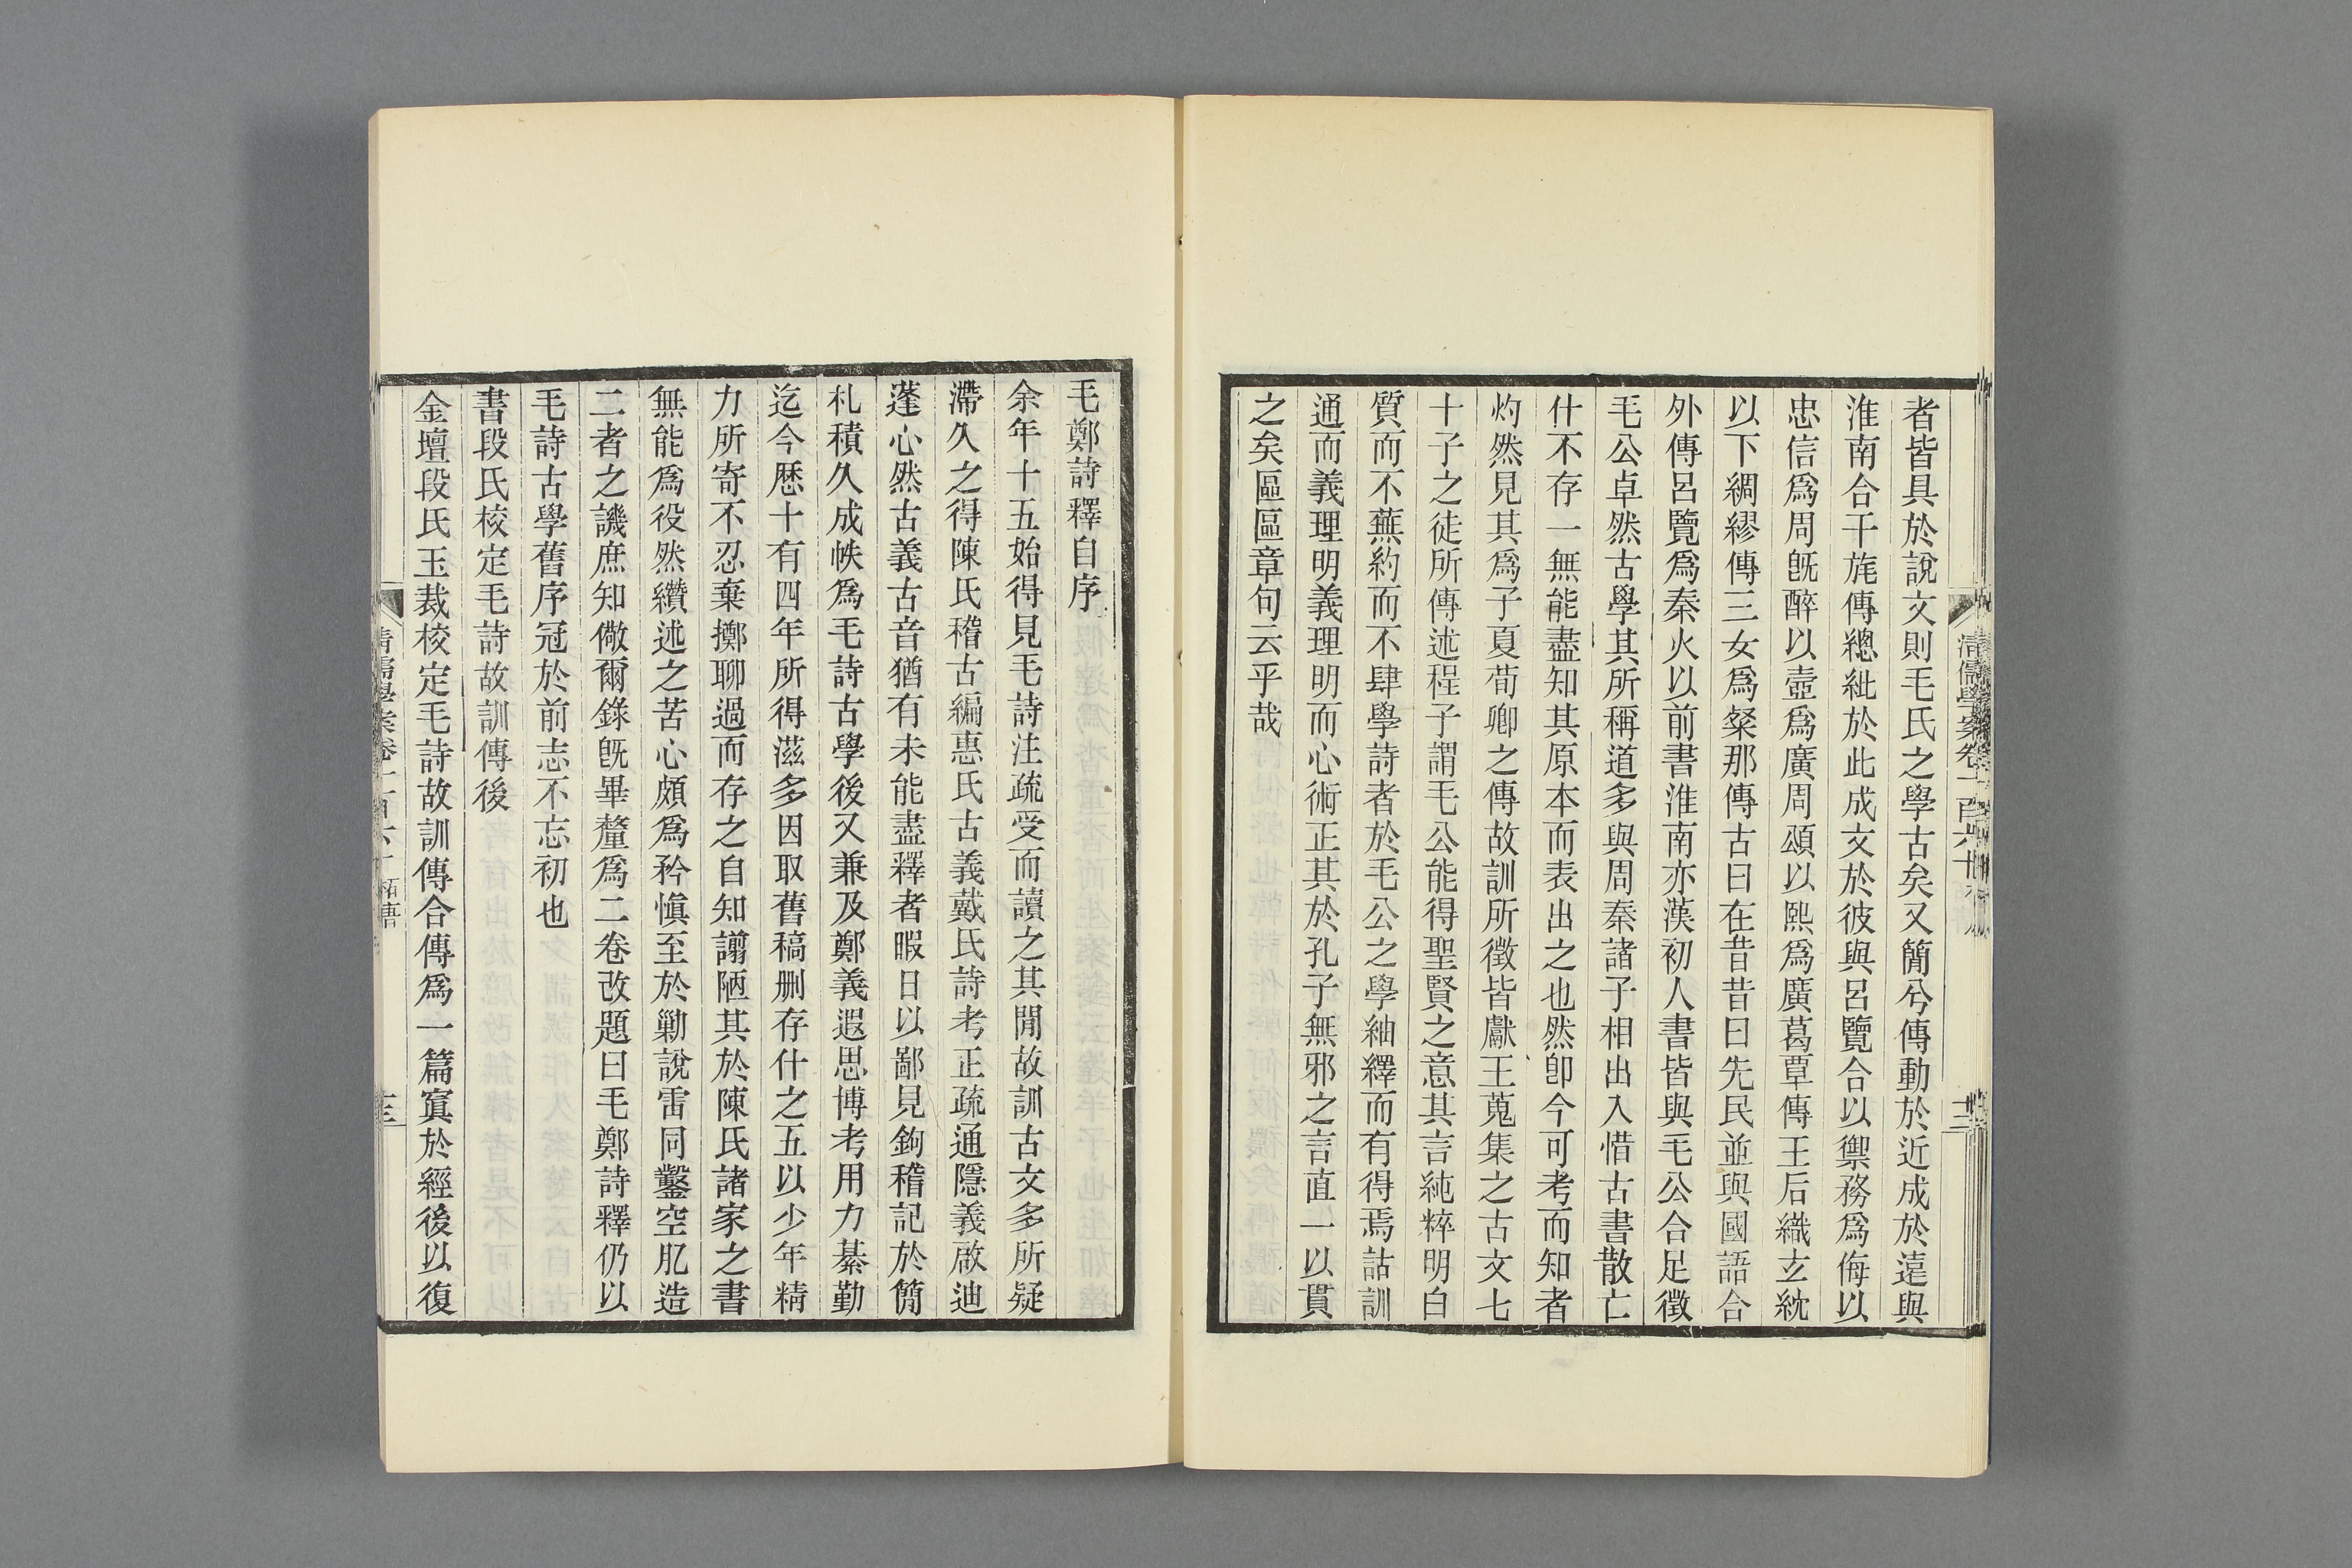 者皆具於說文則毛氏之學古矣又簡兮傳動於近成於遠與
淮南合干旄傳總紕於此成文於彼與呂覽合以禦務爲侮以
忠信爲周旣醉以壼爲廣周頌以熙爲廣葛覃傳王后織玄紞
以下綢繆傳三女爲粲那傳古曰在昔昔曰先民並與國語合
外傳呂覽爲秦火以前書淮南亦漢初人書皆與毛公合足徵
毛公卓然古學其所稱道多與周秦諸子相出入惜古書散亡
什不存一無能盡知其原本而表出之也然卽今可考而知者
灼然見其爲子夏荀卿之傳故訓所徵皆獻王蒐集之古文七
十子之徒所傳述程子謂毛公能得聖賢之意其言純粹明白
質而不蕪約而不肆學詩者於毛公之學紬繹而有得焉詁訓
通而義理明義理明而心術正其於孔子無邪之言直一以貫
之矣區區章句云乎哉
清儒學案卷一百六十
毛鄭詩釋自序
余年十五始得見毛詩注疏受而讀之其閒故訓古文多所疑
滯久之得陳氏稽古編惠氏古義戴氏詩考正疏通隱義啟迪
蓬心然古義古音猶有未能盡釋者暇日以鄙見鉤稽記於簡
札積久成帙爲毛詩古學後又兼及鄭義遐思博考用力綦勤
迄今歷十有四年所得滋多因取舊稿刪存什之五以少年精
力所寄不忍棄擲聊過而存之自知謭陋其於陳氏諸家之書
無能爲役然纘述之苦心頗爲矜愼至於勦說雷同鑿空肊造
二者之譏庶知儆爾錄旣畢釐爲二卷改題曰毛鄭詩釋仍以
毛詩古學舊序冠於前志不忘初也
書段氏校定毛詩故訓傳後
金壇段氏玉裁校定毛詩故訓傳合傳爲一篇寘於經後以復